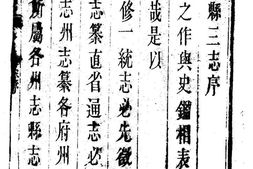 縣三志序
之作與史鑑相表
哉是以
修一統志必先徵
志纂直省通志必
志州志纂各府州
所屬各州志縣志